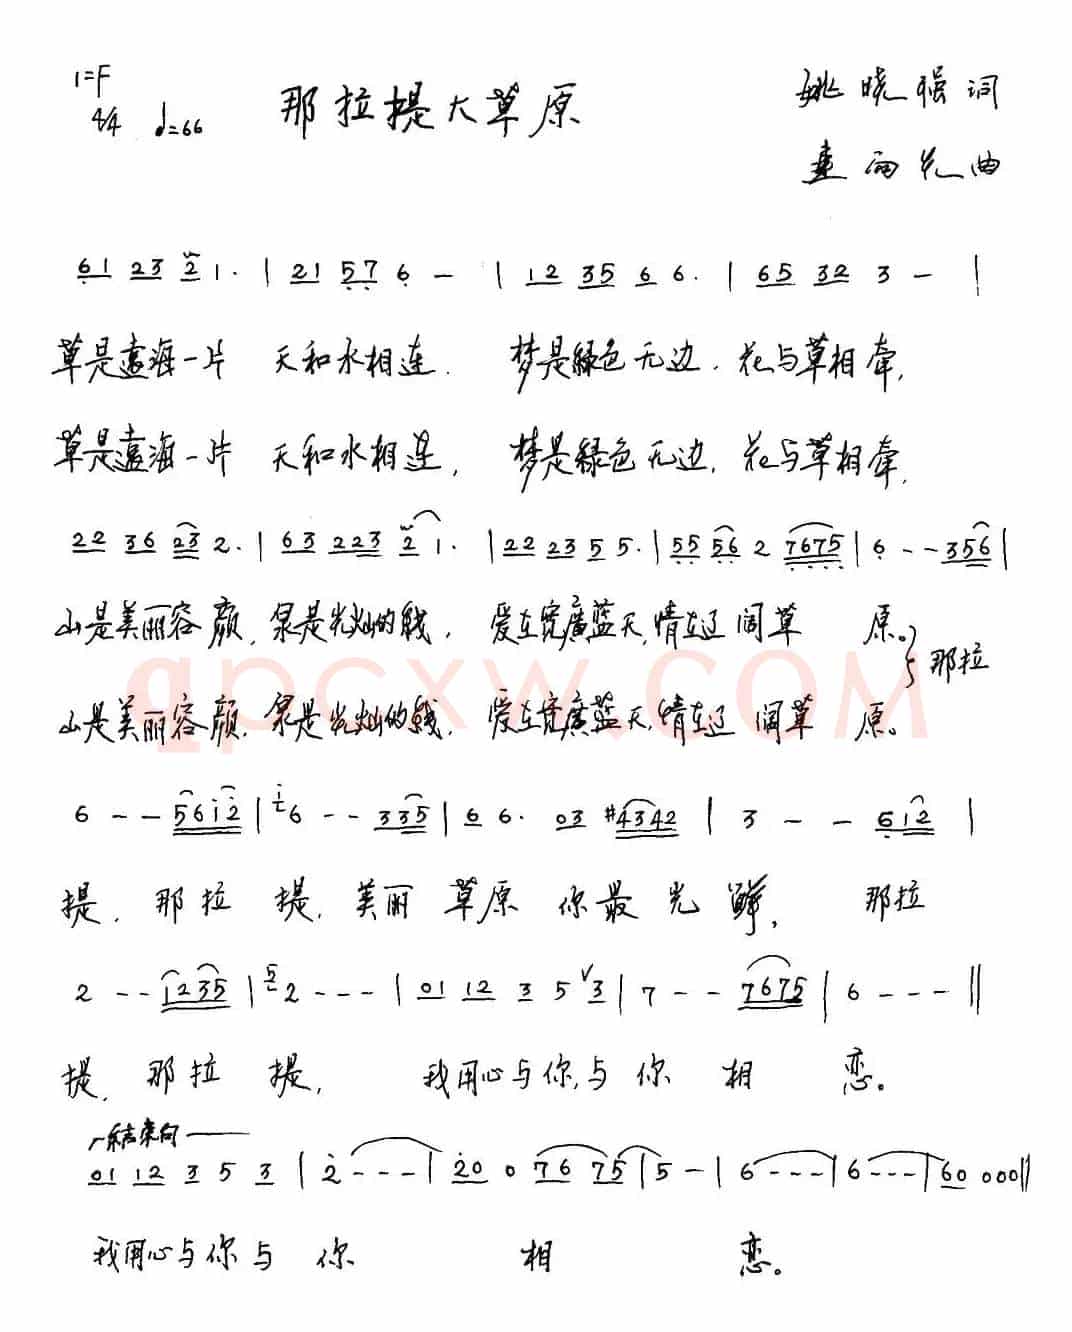 1=F
4/4 ♩=66
那拉提大草原
姚晓强词
曲
61 23 2 1· | 21 57 6 — | 12 35 6 6· | 65 32 3 — |
草是遠海一片 天和水相连. 梦是緑色无边. 花与草相牵,
草是遠海一片 天和水相连, 梦是緑色无边, 花与草相牵,
22 36 23 2· | 63 223 2 1· | 22 23 5 5· | 55 56 2 7675 | 6 - - 356 |
山是美丽容颜, 泉是光灿的钱, 爱在宽廣蓝天, 情在辽阔草原。
那拉
山是美丽容颜, 泉是光灿的钱, 爱在宽廣蓝天, 情在辽阔草原。
6 - - 5612 | i6 - - 335 | 6 6· 03 #4342 | 3 - - 612 |
提, 那拉提, 美丽草原你最光鲜, 那拉
2 - - 1235 | 52 - - - | 01 12 3 5 V 3 | 7 - - 7675 | 6 - - - ‖
提, 那拉提, 我用心与你,与你相恋。
结束句
01 12 3 5 3 | 2 - - - | 20 0 76 75 | 5 - | 6 - - - | 6 - - - | 60 000 ‖
我用心与你与你相恋。
qpcxw.COM